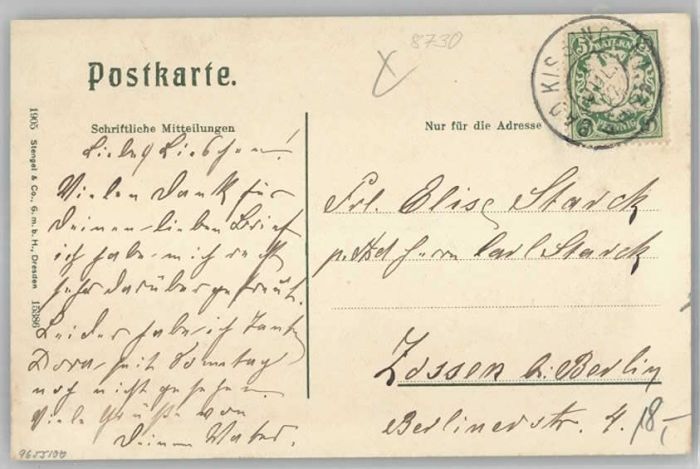 8730
Postkarte.
BAD KISSINGEN
5 BAYERN 5
PFENNIG
Schriftliche Mitteilungen
Nur für die Adresse
1905 Stengel & Co., G. m. b. H., Dresden 15386
Liebes Lieschen!
Vielen Dank für
Deinen lieben Brief
ich habe mich recht
sehr darüber gefreut.
Leider habe ich Tante
Dora seit Sonntag
noch nicht gesehen.
Viele Grüße von
Deinem Vater.
Frl. Elise Starck
p. Ad Herrn Carl Starck
Zossen bei Berlin
Berlinerstr. 4.
18,-
9655100